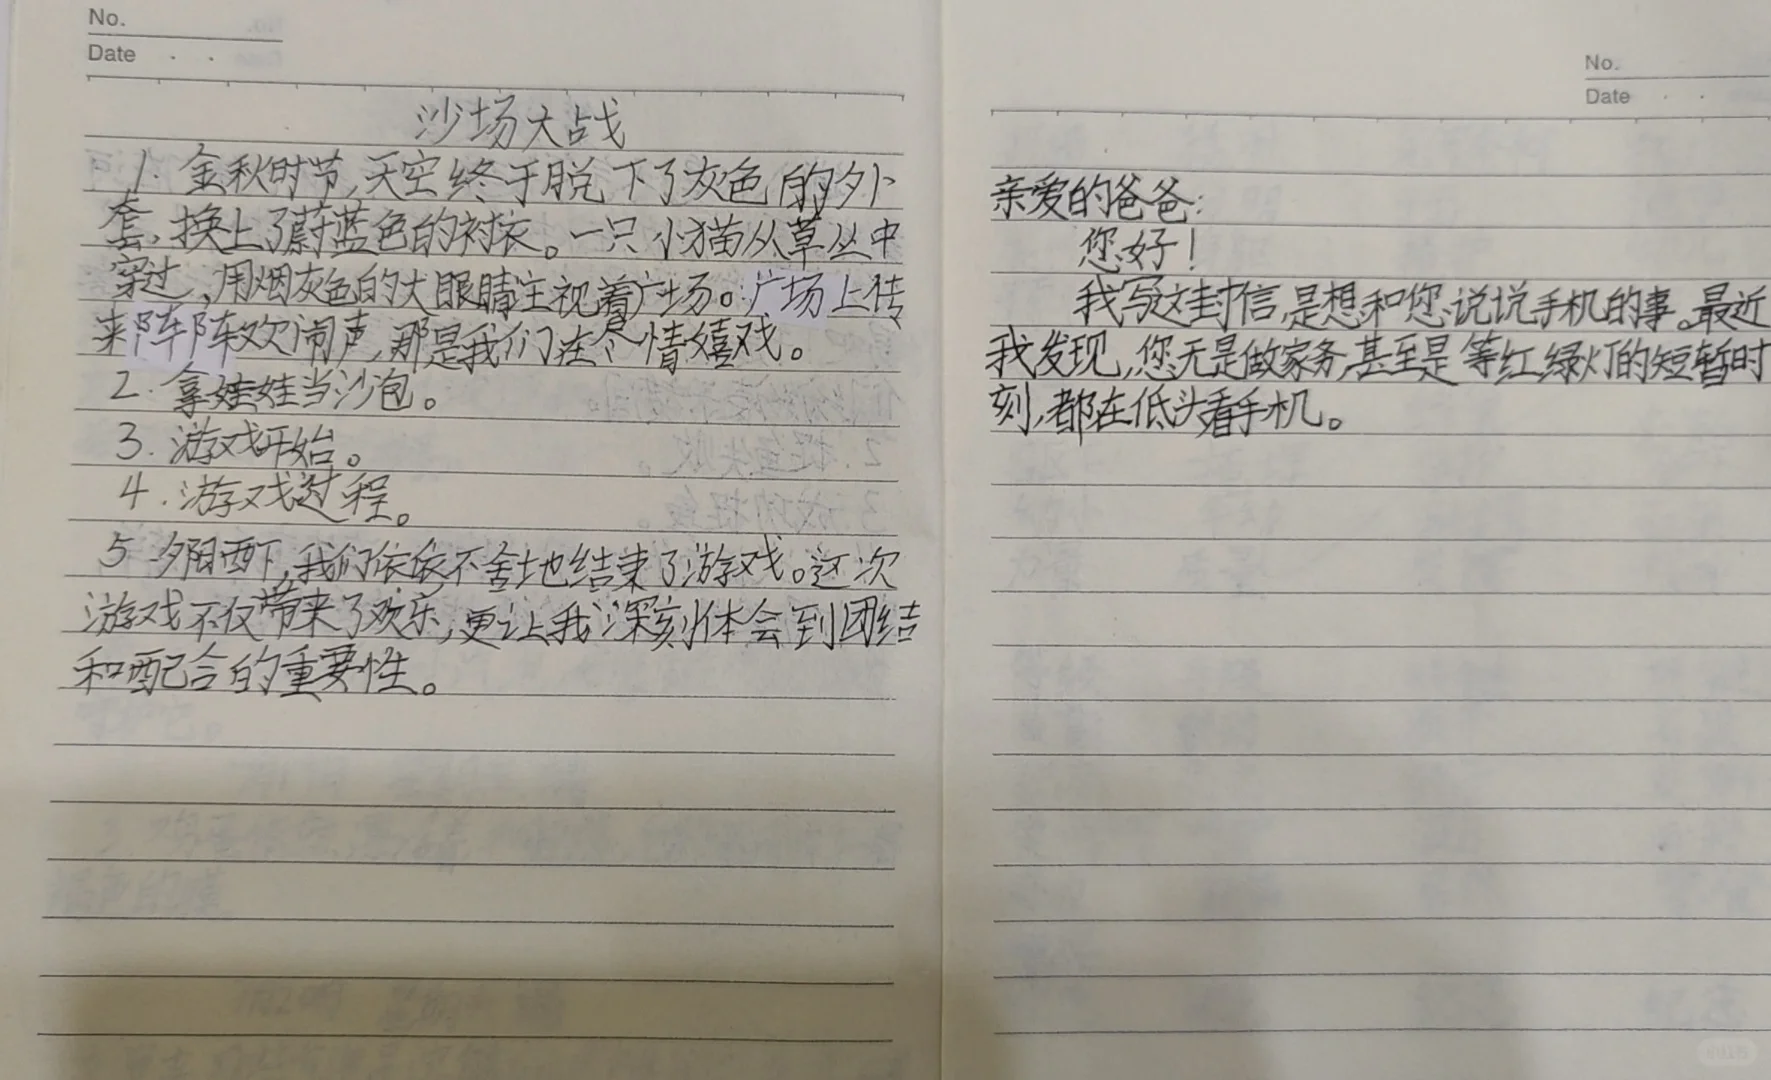 No.
Date
沙场大战
1. 金秋时节,天空终于脱下了灰色的外
套,换上了蔚蓝色的衬衣。一只小猫从草丛中
穿过,用烟灰色的大眼睛注视着广场。广场上传
来阵阵欢闹声,那是我们在尽情嬉戏。
2. 拿娃娃当沙包。
3. 游戏开始。
4. 游戏过程。
5 夕阳西下,我们依依不舍地结束了游戏。这次
游戏不仅带来了欢乐,更让我深刻体会到团结
和配合的重要性。
No.
Date
亲爱的爸爸:
您好!
我写这封信,是想和您说说手机的事。最近
我发现,您无是做家务,甚至是等红绿灯的短暂时
刻,都在低头看手机。